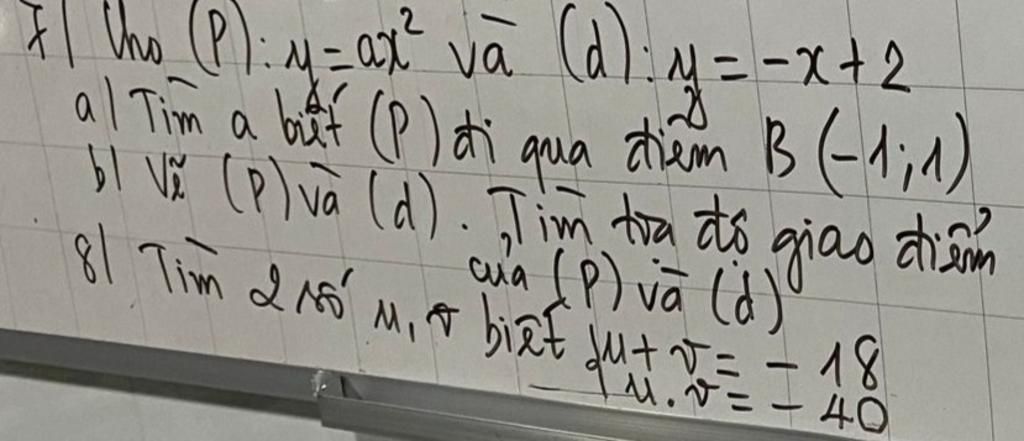 7/ Cho (P): y = ax² và (d): y = -x + 2
a/ Tìm a biết (P) đi qua điểm B (-1; 1)
b/ Vẽ (P) và (d). Tìm tọa độ giao điểm
của (P) và (d)
8/ Tìm 2 số u, v biết u + v = - 18
u . v = - 40